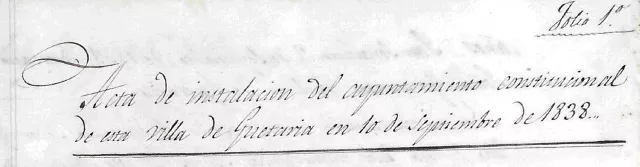 Folio 1.º
Acta de instalacion del ayuntamiento constitucional
de esta villa de Guetaria en 10 de Septiembre de 1838..